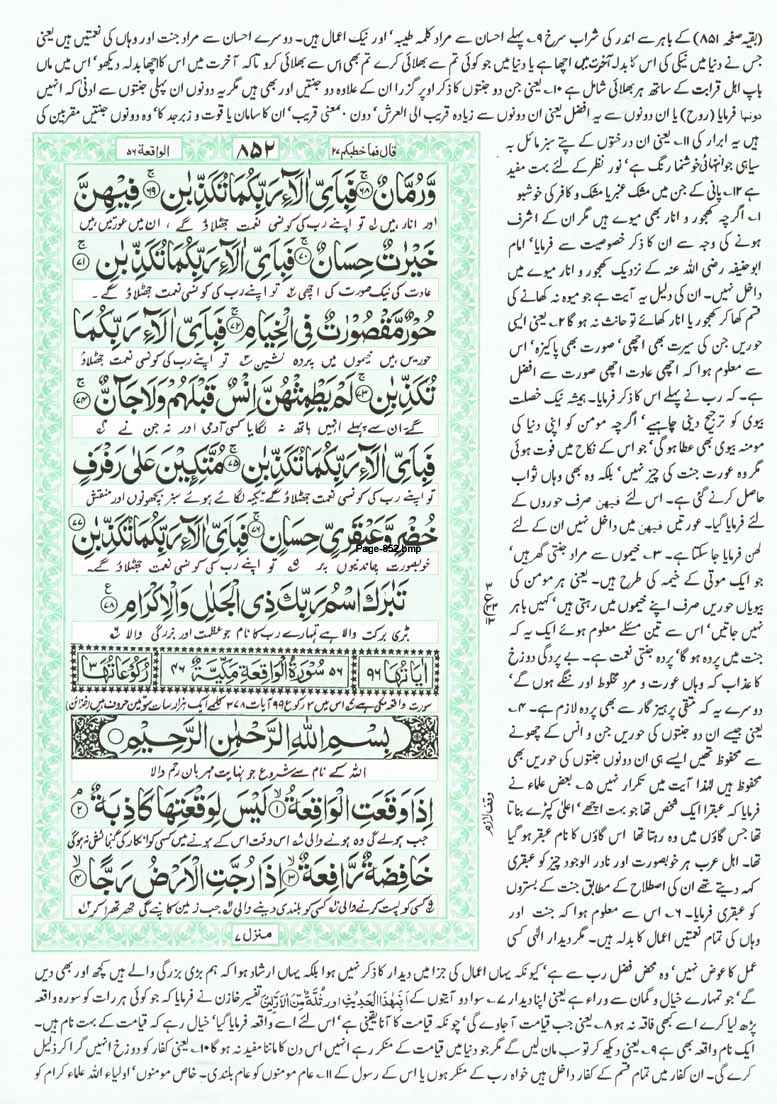 (بقیہ صفحہ ۸۵۱) کے باہر سے اندر کی شراب سرخ ۹۔ پہلے احسان سے مراد کلمہ طیبہ' اور نیک اعمال ہیں۔ دوسرے احسان سے مراد جنت اور وہاں کی نعمتیں ہیں یعنی
جس نے دنیا میں نیکی کی اس کا بدلہ آخرت میں اچھا ہے یا دنیا میں جو کوئی تم سے بھلائی کرے تم بھی اس سے بھلائی کرو تاکہ آخرت میں اس کا اچھا بدلہ دیکھو' اس میں ماں
باپ اہل قرابت کے ساتھ ہر بھلائی شامل ہے ۱۰۔ یعنی جن دو جنتوں کا ذکر اوپر گزرا ان کے علاوہ دو جنتیں اور بھی ہیں مگر یہ دونوں ان پہلی جنتوں سے ادنیٰ کہ انہیں
دونہا فرمایا (روح) یا ان دونوں سے یہ افضل یعنی ان دونوں سے زیادہ قریب الی العرش' دون ۰ معنی قریب' ان کا سامان یا قوت و زبرجد کا' وہ دونوں جنتیں مقربین کی
ہیں یہ ابرار کی ۱۱۔ یعنی ان درختوں کے پتے سبز مائل بہ
سیاہی جو انتہائی خوشنما رنگ ہے' نور نظر کے لئے بہت مفید
ہے ۱۲۔ پانی کے جن میں مشک عنبر یا مشک و کافر کی خوشبو
۱۔ اگرچہ کھجور و انار بھی میوے ہیں مگر ان کے اشرف
ہونے کی وجہ سے ان کا ذکر خصوصیت سے فرمایا' امام
ابو حنیفہ رضی اللہ عنہ کے نزدیک کھجور و انار میوے میں
داخل نہیں۔ ان کی دلیل یہ آیت ہے جو میوہ نہ کھانے کی
قسم کھا کر کھجور یا انار کھائے تو حانث نہ ہو گا ۲۔ یعنی ایسی
حوریں جن کی سیرت بھی اچھی' صورت بھی پاکیزہ' اس
سے معلوم ہوا کہ اچھی عادت اچھی صورت سے افضل
ہے۔ کہ رب نے پہلے اس کا ذکر فرمایا۔ ہمیشہ نیک خصلت
بیوی کو ترجیح دینی چاہیے' اگرچہ مومن کو اپنی دنیا کی
مومنہ بیوی بھی عطا ہو گی' جو اس کے نکاح میں فوت ہوئی
مگر وہ عورت جنت کی چیز نہیں' بلکہ وہ بھی وہاں ثواب
حاصل کرنے گئی ہے۔ اس لئے فیھن صرف حوروں کے
لئے فرمایا گیا۔ عورتیں فیھن میں داخل نہیں ان کے لئے
لھن فرمایا جا سکتا ہے۔ ۳۔ خیموں سے مراد جنتی گھر ہیں'
جو ایک موتی کے خیمہ کی طرح ہیں۔ یعنی ہر مومن کی
بیویاں حوریں صرف اپنے خیموں میں رہتی ہیں' کہیں باہر
نہیں جاتیں' اس سے تین مسئلے معلوم ہوئے ایک یہ کہ
جنت میں پردہ ہو گا' پردہ جنتی نعمت ہے۔ بے پردگی دوزخ
کا عذاب کہ وہاں عورت و مرد مخلوط اور ننگے ہوں گے'
دوسرے یہ کہ متقی پرہیز گار سے بھی پردہ لازم ہے۔ ۴۔
یعنی جیسے ان دو جنتوں کی حوریں جن و انس کے چھونے
سے محفوظ تھیں ایسے ہی ان دونوں جنتوں کی حوریں بھی
محفوظ ہیں لہٰذا آیت میں تکرار نہیں ۵۔ بعض علماء نے
فرمایا کہ عبقرا ایک شخص تھا جو بہت اچھے' اعلیٰ کپڑے بناتا
تھا جس گاؤں میں وہ رہتا تھا اس گاؤں کا نام عبقر ہو گیا
تھا۔ اہل عرب ہر خوبصورت اور نادر الوجود چیز کو عبقری
کہہ دیتے تھے ان کی اصطلاح کے مطابق جنت کے بستروں
کو عبقری فرمایا۔ ۶۔ اس سے معلوم ہوا کہ جنت اور
وہاں کی تمام نعمتیں اعمال کا بدلہ ہیں۔ مگر دیدار الٰہی کسی
عمل کا عوض نہیں' وہ محض فضل رب سے ہے' کیونکہ یہاں اعمال کی جزا میں دیدار کا ذکر نہیں ہوا بلکہ یہاں ارشاد ہوا کہ ہم بڑی بزرگی والے ہیں کچھ اور بھی دیں
گے' جو تمہارے خیال و گمان سے وراء ہے یعنی اپنا دیدار ۷۔ سوا دو آیتوں کے اَفَبِهٰذَا الْحَدِيْثِ اور ثُلَّةٌ مِّنَ الْاَوَّلِيْنَ تفسیر خازن نے فرمایا کہ جو کوئی ہر رات کو سورہ واقعہ
پڑھ لیا کرے اسے کبھی فاقہ نہ ہو ۸۔ یعنی جب قیامت آ جاوے گی' چونکہ قیامت کا آنا یقینی ہے' اس لئے اسے واقعہ فرمایا گیا' خیال رہے کہ قیامت کے بہت نام ہیں۔
ایک نام واقعہ بھی ہے ۹۔ یعنی دیکھ کر تو سب مان لیں گے مگر جو دنیا میں قیامت کے منکر رہے انہیں اس دن کا ماننا مفید نہ ہو گا ۱۰۔ یعنی کفار کو دوزخ انہیں گرا کر ذلیل
کرے گی۔ ان کفار میں تمام قسم کے کفار داخل ہیں خواہ رب کے منکر ہوں یا اس کے رسول کے ۱۱۔ عام مومنوں کو عام بلندی۔ خاص مومنوں' اولیاء اللہ علماء کرام کو
قال فما خطبکم ۲۷ ۸۵۲ الواقعة ۵۶
وَّرُمَّانٌ ۶۸ فَبِاَيِّ اٰلَآءِ رَبِّكُمَا تُكَذِّبٰنِ ۶۹ فِيْهِنَّ
اور انار ہیں تو اپنے رب کی کونسی نعمت جھٹلاؤ گے ، ان میں عورتیں ہیں
خَيْرٰتٌ حِسَانٌ ۷۰ فَبِاَيِّ اٰلَآءِ رَبِّكُمَا تُكَذِّبٰنِ ۷۱
عادت کی نیک صورت کی اچھی تو اپنے رب کی کونسی نعمت جھٹلاؤ گے ۔
حُوْرٌ مَّقْصُوْرٰتٌ فِي الْخِيَامِ ۷۲ فَبِاَيِّ اٰلَآءِ رَبِّكُمَا
حوریں ہیں خیموں میں پردہ نشین تو اپنے رب کی کونسی نعمت جھٹلاؤ
تُكَذِّبٰنِ ۷۳ لَمْ يَطْمِثْهُنَّ اِنْسٌ قَبْلَهُمْ وَلَا جَآنٌّ ۷۴
گے ان سے پہلے انہیں ہاتھ نہ لگایا کسی آدمی اور نہ جن نے
فَبِاَيِّ اٰلَآءِ رَبِّكُمَا تُكَذِّبٰنِ ۷۵ مُتَّكِـِٕيْنَ عَلٰى رَفْرَفٍ
تو اپنے رب کی کونسی نعمت جھٹلاؤ گے تکیہ لگائے ہوئے سبز بچھونوں اور منقش
خُضْرٍ وَّعَبْقَرِيٍّ حِسَانٍ ۷۶ فَبِاَيِّ اٰلَآءِ رَبِّكُمَا تُكَذِّبٰنِ ۷۷
Page-852.bmp
خوبصورت چاندنیوں پر تو اپنے رب کی کونسی نعمت جھٹلاؤ گے۔
تَبٰرَكَ اسْمُ رَبِّكَ ذِي الْجَلٰلِ وَالْاِكْرَامِ ۷۸
بڑی برکت والا ہے تمہارے رب کا نام جو عظمت اور بزرگی والا
اٰيَاتُهَا ۹۶ ۵۶ سُوْرَةُ الْوَاقِعَةِ مَكِّيَّةٌ ۴۶ رُكُوْعَاتُهَا ۳
سورت واقعہ مکی ہے اس میں ۳ رکوع ۹۹ آیات ۳۷۸ کلمے ایک ہزار سات سو تین حروف ہیں (خزائن)
بِسْمِ اللّٰهِ الرَّحْمٰنِ الرَّحِيْمِ
اللہ کے نام سے شروع جو نہایت مہربان رحم والا
اِذَا وَقَعَتِ الْوَاقِعَةُ ۱ لَيْسَ لِوَقْعَتِهَا كَاذِبَةٌ ۲
جب ہولے گی وہ ہونے والی اس وقت اس کے ہونے میں کسی کو انکار کی گنجائش نہ ہوگی
خَافِضَةٌ رَّافِعَةٌ ۳ اِذَا رُجَّتِ الْاَرْضُ رَجًّا ۴
کسی کو پست کرنے والی کسی کو بلندی دینے والی جب زمین کانپے گی تھر تھرا کر
منزل ۷
وقف لازم